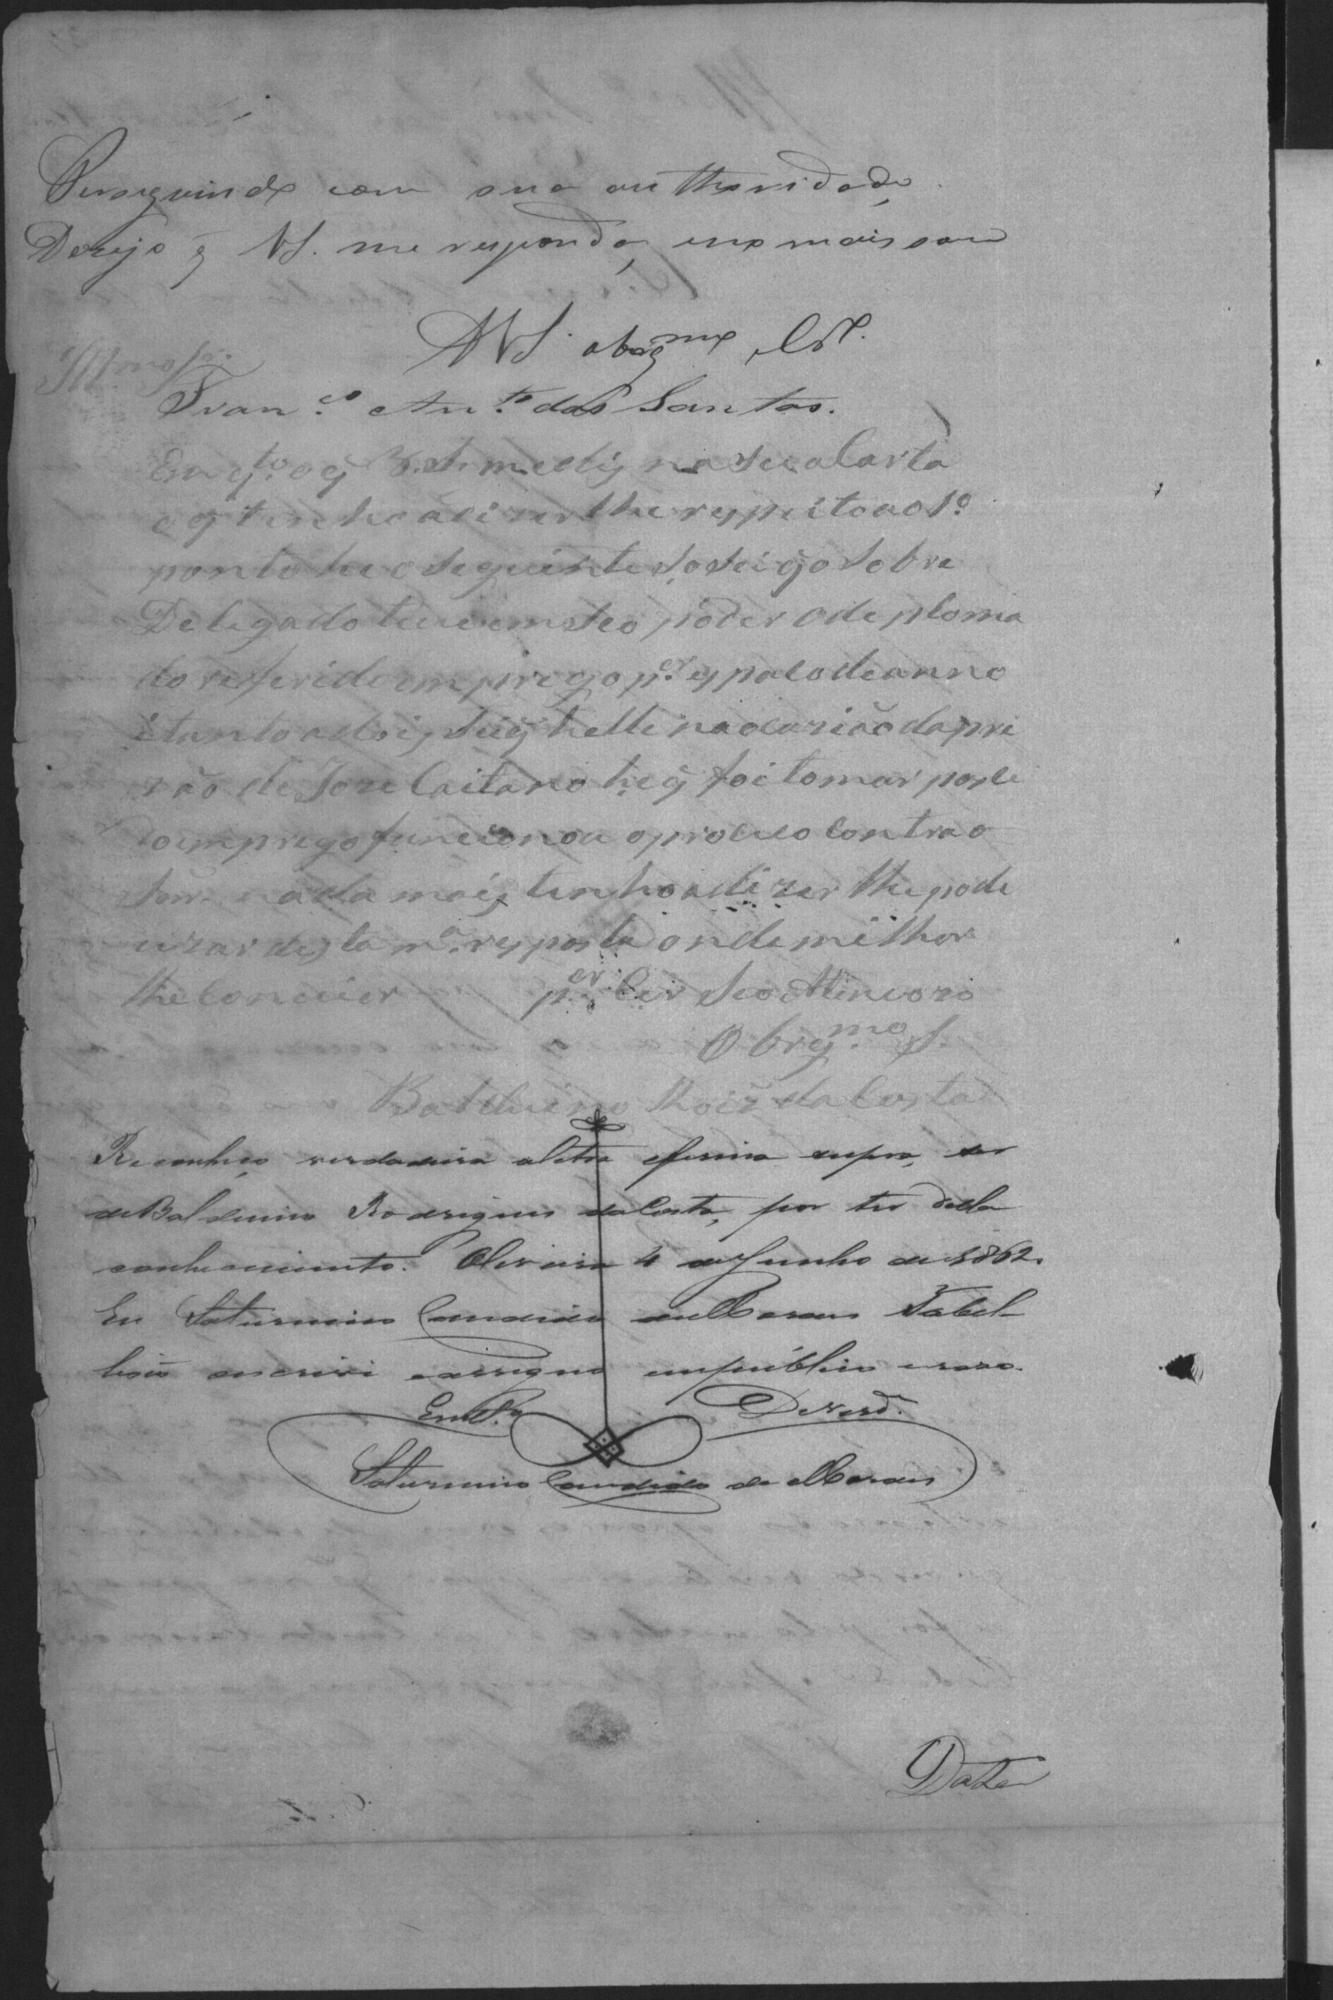 Perseguindo com sua authoridade,
Dezejo q̃ VS. me responda, eno mais sou
DVS. obrg.mo Cr.º
Illmo Sr.
Fran.co Ant.to dos Santos.
Em q.to o q̃ V.S. me diz na sua Carta
o q̃ tenho a dizer lhe respeito ao 1º
ponto he o seguinte q̃ o sobre
Delegado teve em seo poder o deploma
do referido emprego p.r espaso de anno
e tanto a dois q̃ helle na ocazião da pri
zão de Joze Caitano he q̃ foi tomar pose
do emprego funcionou o proceco contra o
nada mais tenho a dizer lhe pode
uzar desta m.a resposta onde milhor
lhe convier p.r ser Seo Att
Obrg.mo S.
Balduino Roiz da Costa
Reconheço verdadeira a letra efirma supra, ser
de Balduino Rodrigues da Costa, por ter della
conhecimento. Oliveira 4 de Junho de 1862.
Eu Saturnino Candido de Moraes Tabel-
lião escrevi e assigno em publico e raso.
Em Tº De verd.e
Saturnino Candido de Moraes
Data